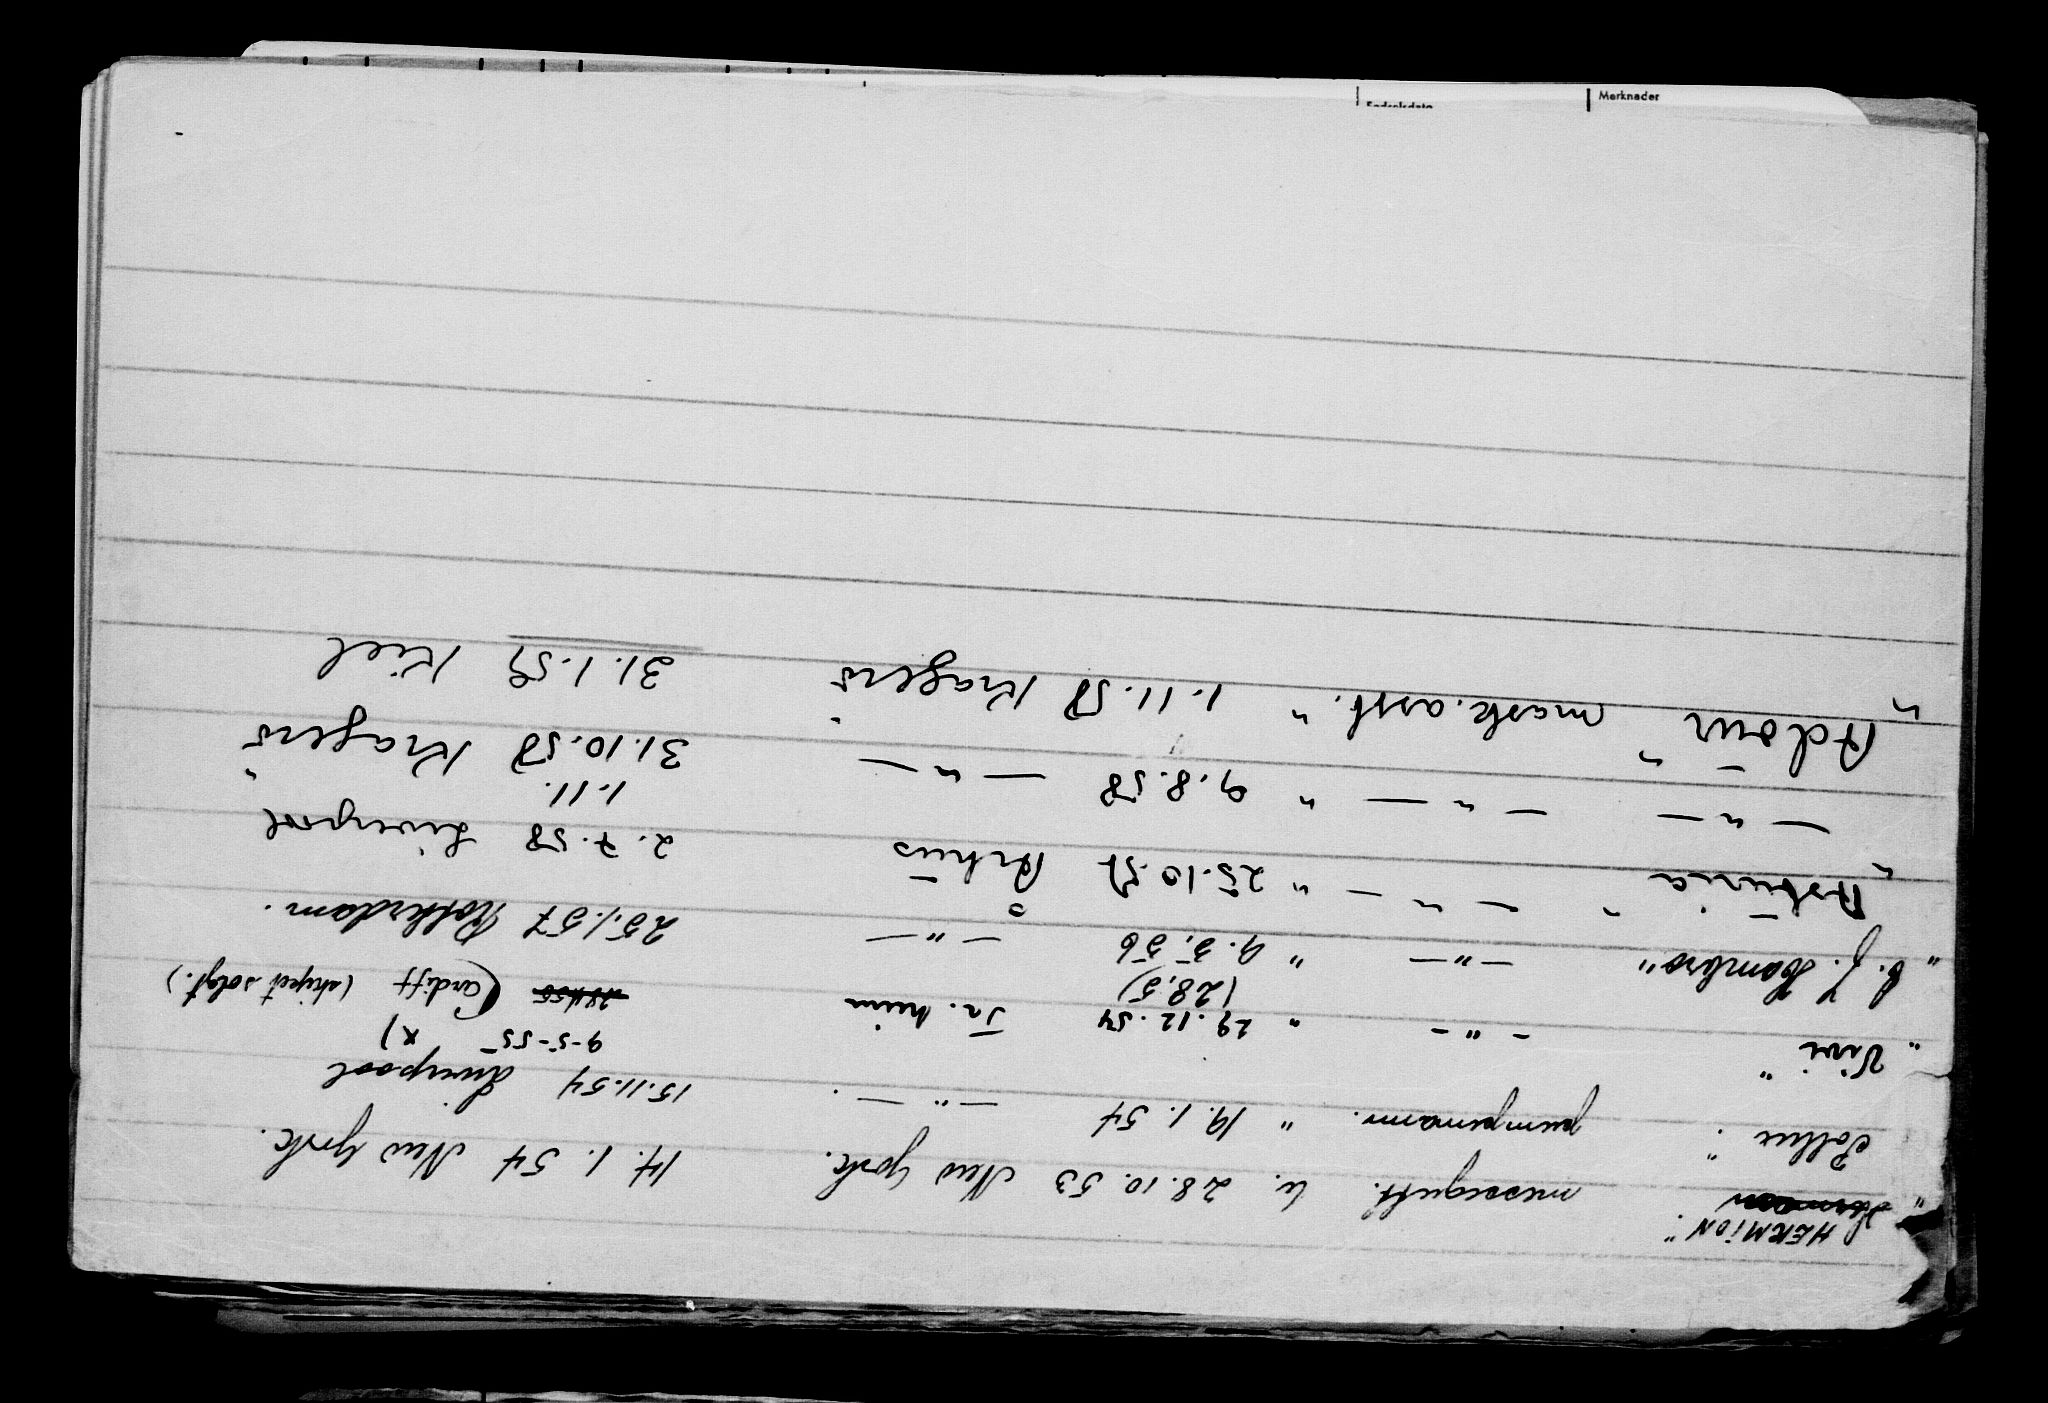 "HERMiON"
messegutt. u. 28.10.53 New York. 14.1.54 New York.
"Pollux". pumpemann. " 19.1.54 — " — . 15.11.54 Liverpool
9-5-55 x)
"Vivi" - " - " 29.12.54 Tr.heim Cardiff (skipet solgt.)
(28,5)
"C. J. Hambro" — " — " 9.3.56 — " — 25.1.57 Rotterdam.
"Astŭria" — " — " 25.10.57 Århŭs 2.7.58 Liverpool
1.11.
— " — — " — " 9.8.58 — " — 31.10.58 Kragerö
"Adoŭr" mask.asst. " 1.11.58 Kragerö 31.1.59 Kiel
Merknader